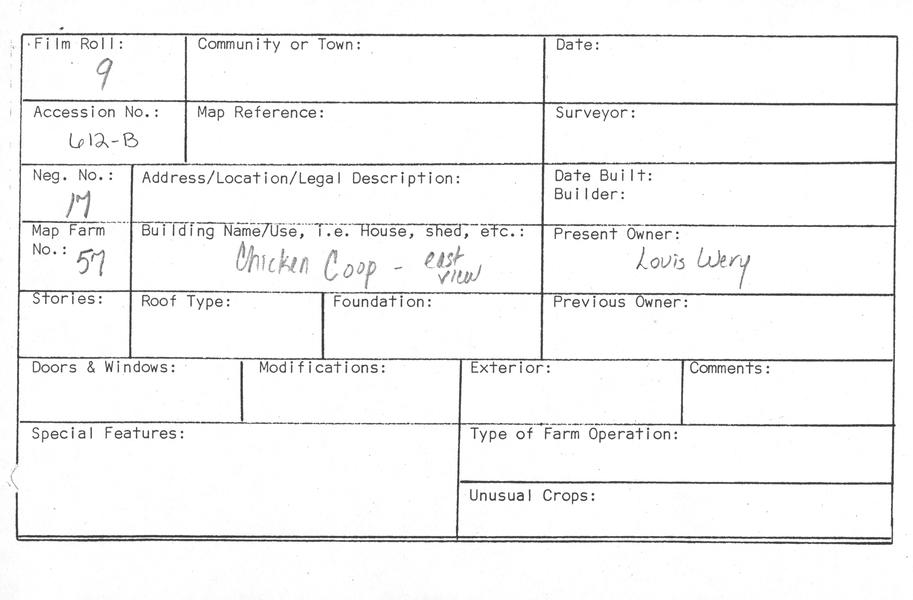 Film Roll:
9
Community or Town:
Date:
Accession No.:
612-B
Map Reference:
Surveyor:
Neg. No.:
17
Address/Location/Legal Description:
Date Built:
Builder:
Map Farm
No.: 57
Building Name/Use, i.e. House, shed, etc.:
Chicken Coop - east
view
Present Owner:
Louis Wery
Stories:
Roof Type:
Foundation:
Previous Owner:
Doors & Windows:
Modifications:
Exterior:
Comments:
Special Features:
Type of Farm Operation:
Unusual Crops: